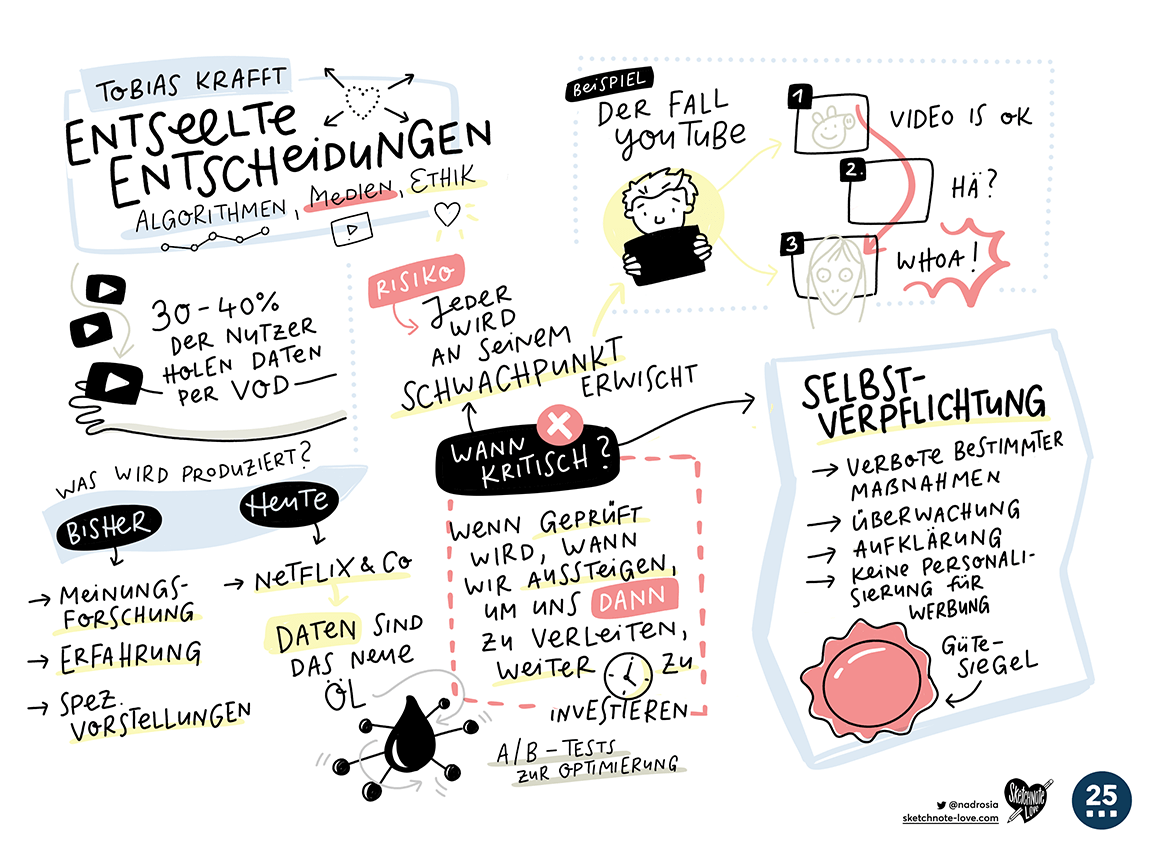 TOBIAS KRAFFT
ENTSEELTE
ENTSCHEIDUNGEN
ALGORITHMEN, MEDIEN, ETHIK
30-40%
DER NUTZER
HOLEN DATEN
PER VOD
WAS WIRD PRODUZIERT?
BISHER
→ MEINUNGS-
FORSCHUNG
→ ERFAHRUNG
→ SPEZ.
VORSTELLUNGEN
HEUTE
→ NETFLIX & CO
DATEN SIND
DAS NEUE
ÖL
RISIKO
JEDER
WIRD
AN SEINEM
SCHWACHPUNKT
ERWISCHT
WANN
KRITISCH?
WENN GEPRÜFT
WIRD, WANN
WIR AUSSTEIGEN,
UM UNS DANN
ZU VERLEITEN,
WEITER ZU
INVESTIEREN
A/B-TESTS
ZUR OPTIMIERUNG
BEISPIEL
DER FALL
YOUTUBE
1
VIDEO IS OK
2.
HÄ?
3
WHOA!
SELBST-
VERPFLICHTUNG
→ VERBOTE BESTIMMTER
MAßNAHMEN
→ ÜBERWACHUNG
→ AUFKLÄRUNG
→ KEINE PERSONALI-
SIERUNG FÜR
WERBUNG
GÜTE-
SIEGEL
@nadrosia
sketchnote-love.com
SKETCHNOTE
LOVE
25